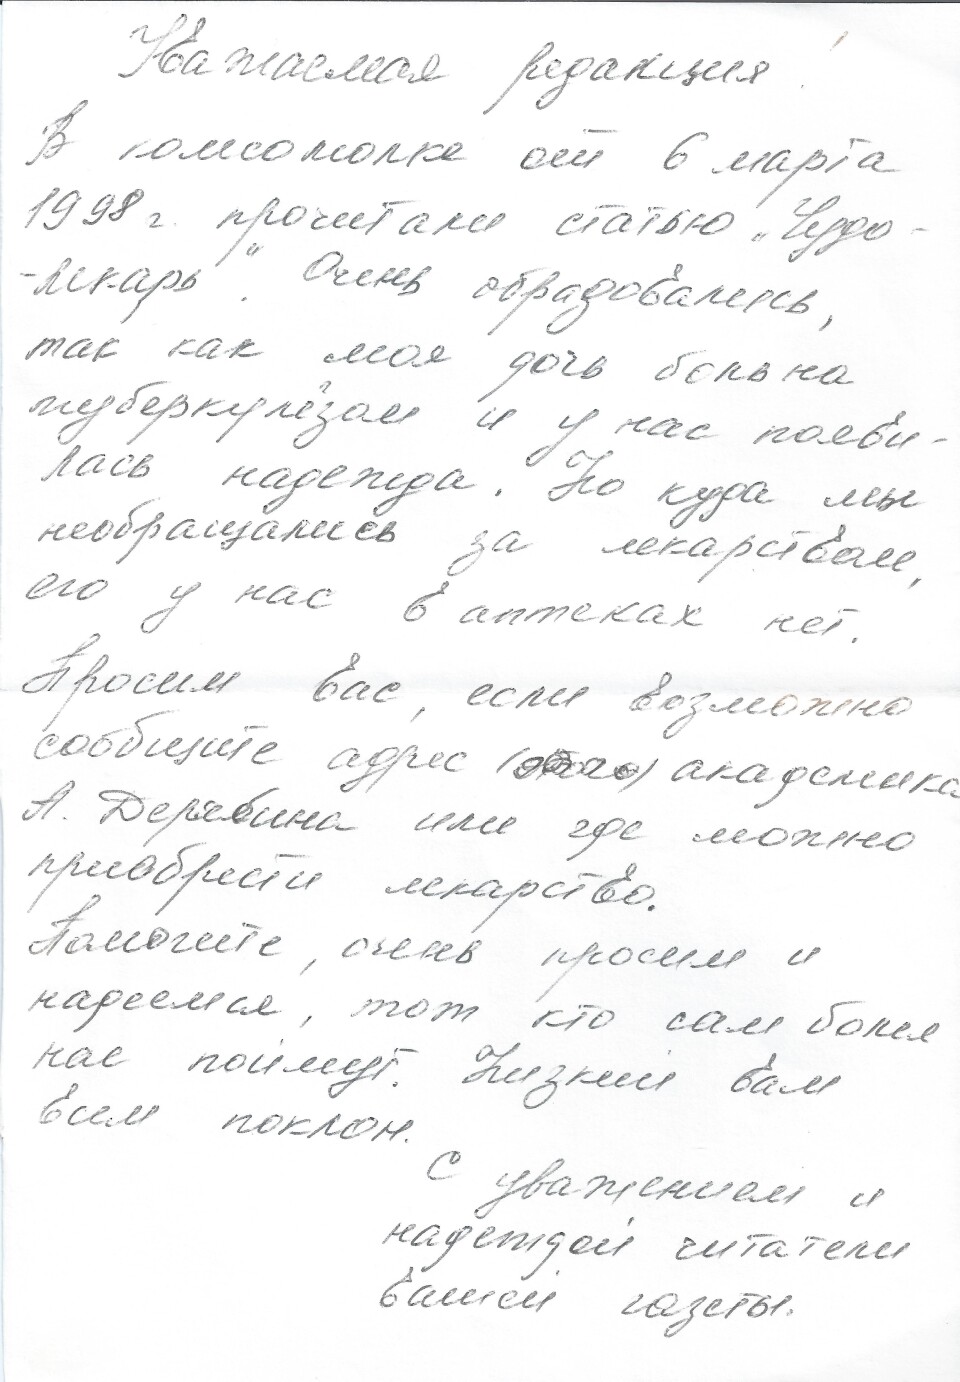 Уважаемая редакция!
В комсомолке от 6 марта
1998 г. прочитали статью „Чудо-
-лекарь". Очень обрадовались,
так как моя дочь больна
туберкулёзом и у нас появи-
лась надежда. Но куда мы
необращались за лекарством,
его у нас в аптеках нет.
Просим вас, если возможно
сообщите адрес () академика
А. Дерябина или где можно
приобрести лекарство.
Помогите, очень просим и
надеемся, тот кто сам болел
нас поймут. Низкий вам
всем поклон.
С уважением и
надеждой читатели
вашей газеты.